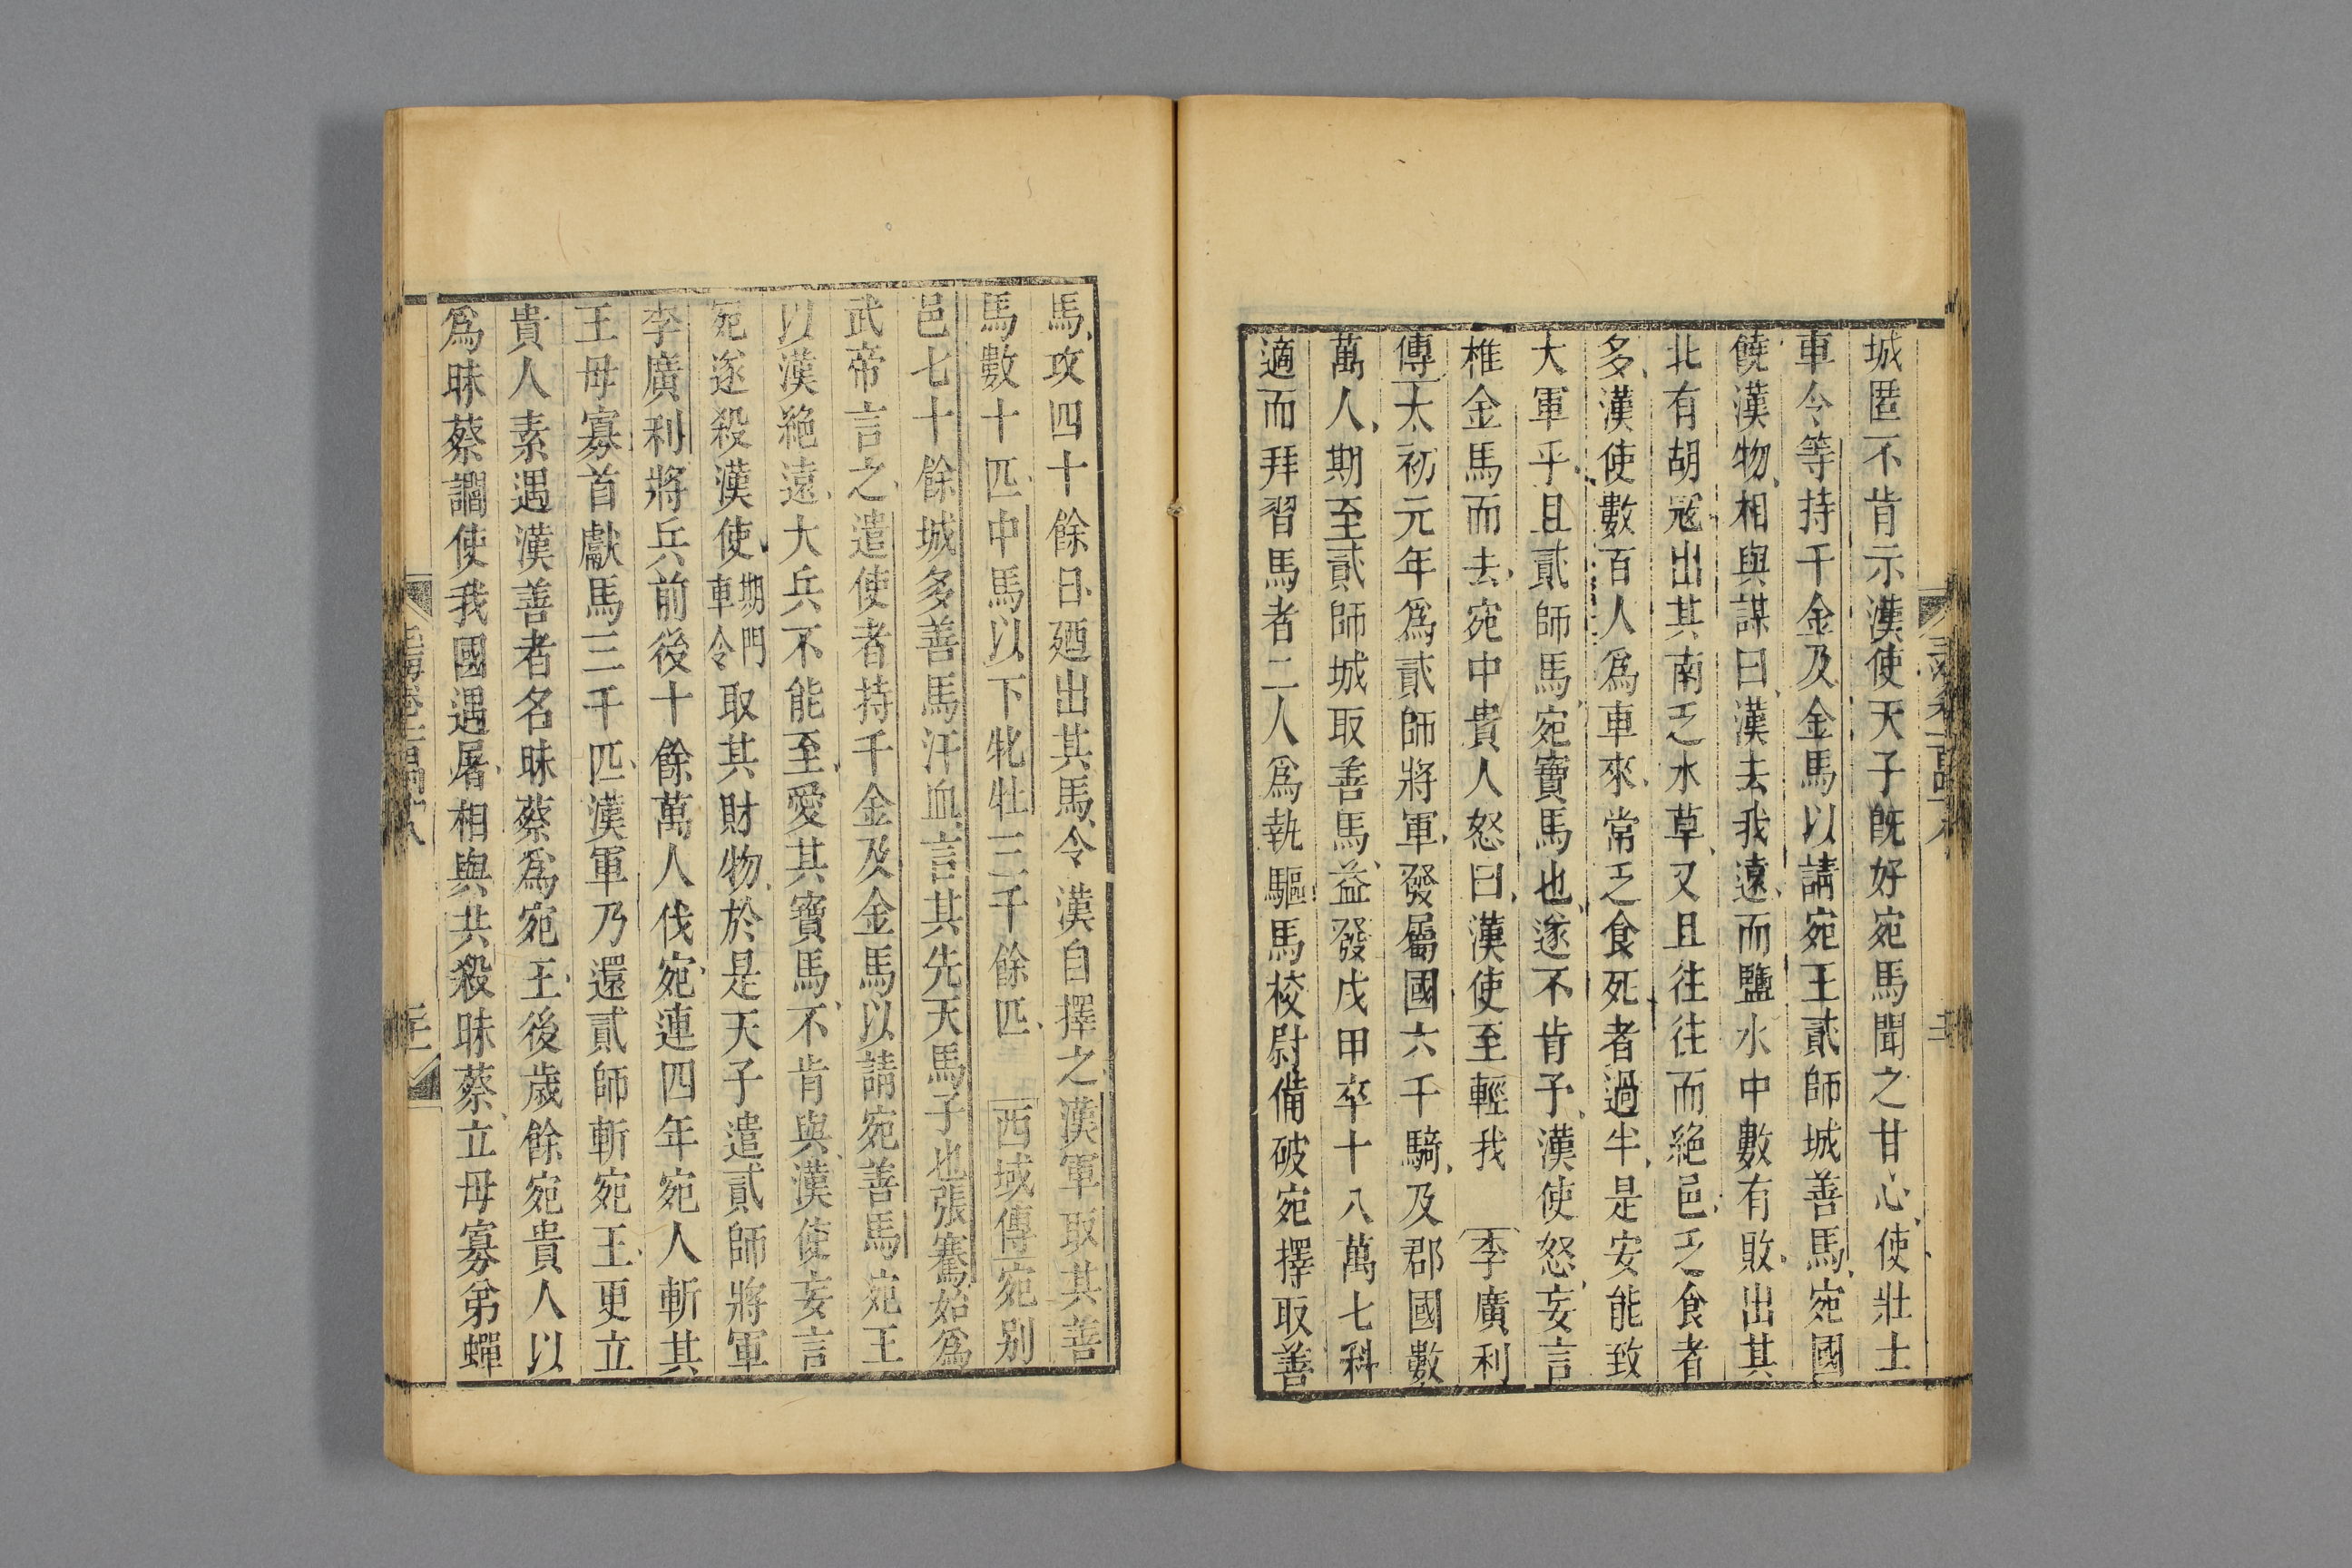 城匿不肯示漢使天子既好宛馬聞之甘心使壯士
車令等持千金及金馬以請宛王貳師城善馬宛國
饒漢物相與謀曰漢去我遠而鹽水中數有敗出其
北有胡寇出其南乏水草又且往往而絶邑乏食者
多漢使數百人爲車來常乏食死者過半是安能致
大軍乎且貳師馬宛寶馬也遂不肯予漢使怒妄言
椎金馬而去宛中貴人怒曰漢使至輕我 李廣利
傳太初元年爲貳師將軍發屬國六千騎及郡國數
萬人期至貳師城取善馬益發戍甲卒十八萬七科
適而拜習馬者二人爲執驅馬校尉備破宛擇取善
馬攻四十餘日廼出其馬令漢自擇之漢軍取其善
馬數十匹中馬以下牝牡三千餘匹 西域傳宛别
邑七十餘城多善馬汗血言其先天馬子也張騫始爲
武帝言之遣使者持千金及金馬以請宛善馬宛王
以漢絶遠大兵不能至愛其寶馬不肯與漢使妄言
宛遂殺漢使期門車令取其財物於是天子遣貳師將軍
李廣利將兵前後十餘萬人伐宛連四年宛人斬其
王毋寡首獻馬三千匹漢軍乃還貳師斬宛王更立
貴人素遇漢善者名昧蔡爲宛王後歲餘宛貴人以
爲昧蔡讇使我國遇屠相與共殺昧蔡立毋寡弟蟬